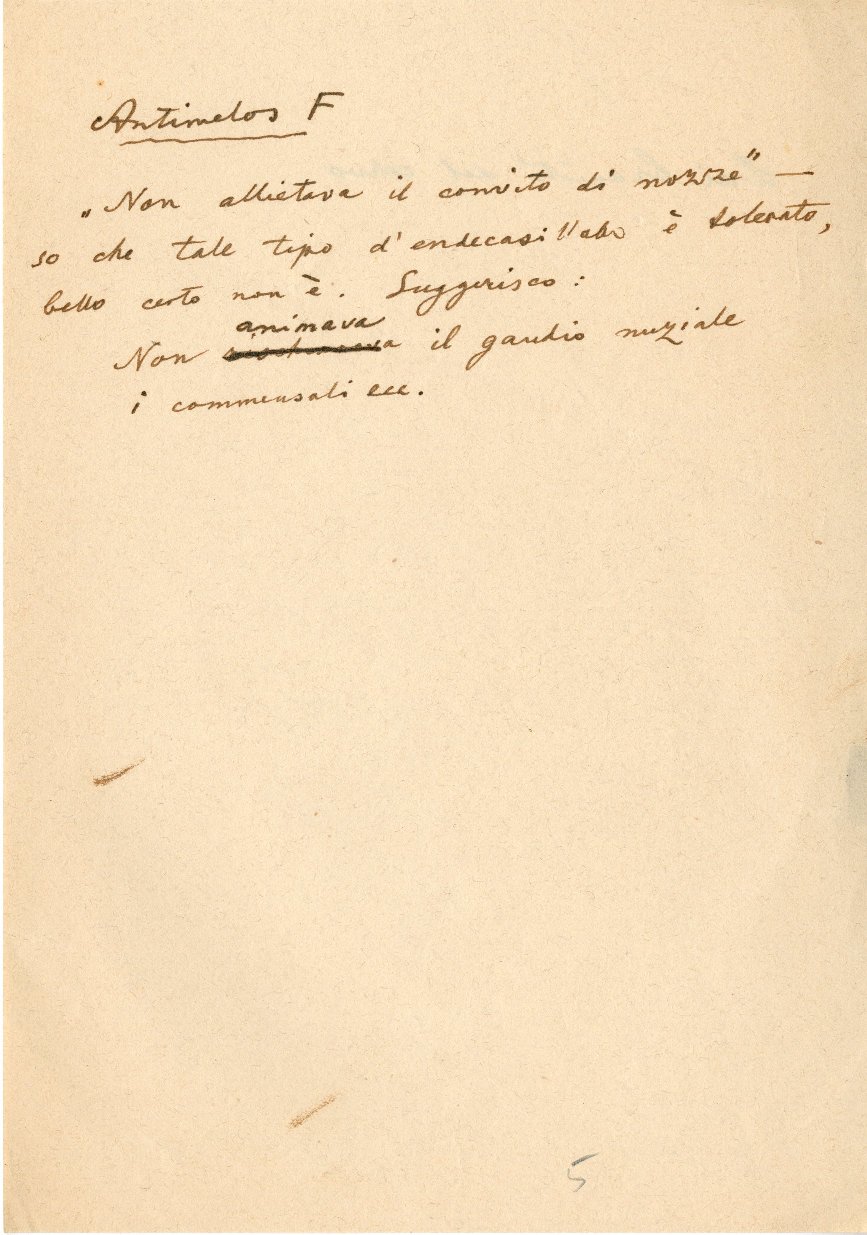 Antimelos F
„Non allietava il convito di nozze" —
so che tale tipo d'endecasillabo è tolerato,
bello certo non è. Suggerisco:
animava
Non il gaudio nuziale
i commensali ecc.
5